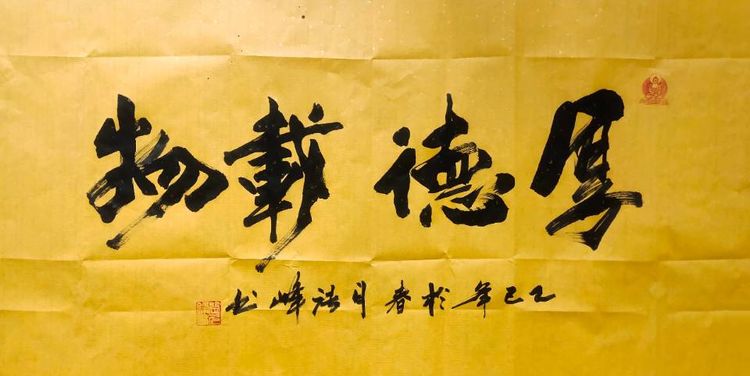 厚德載物
乙巳年於春月
峰书